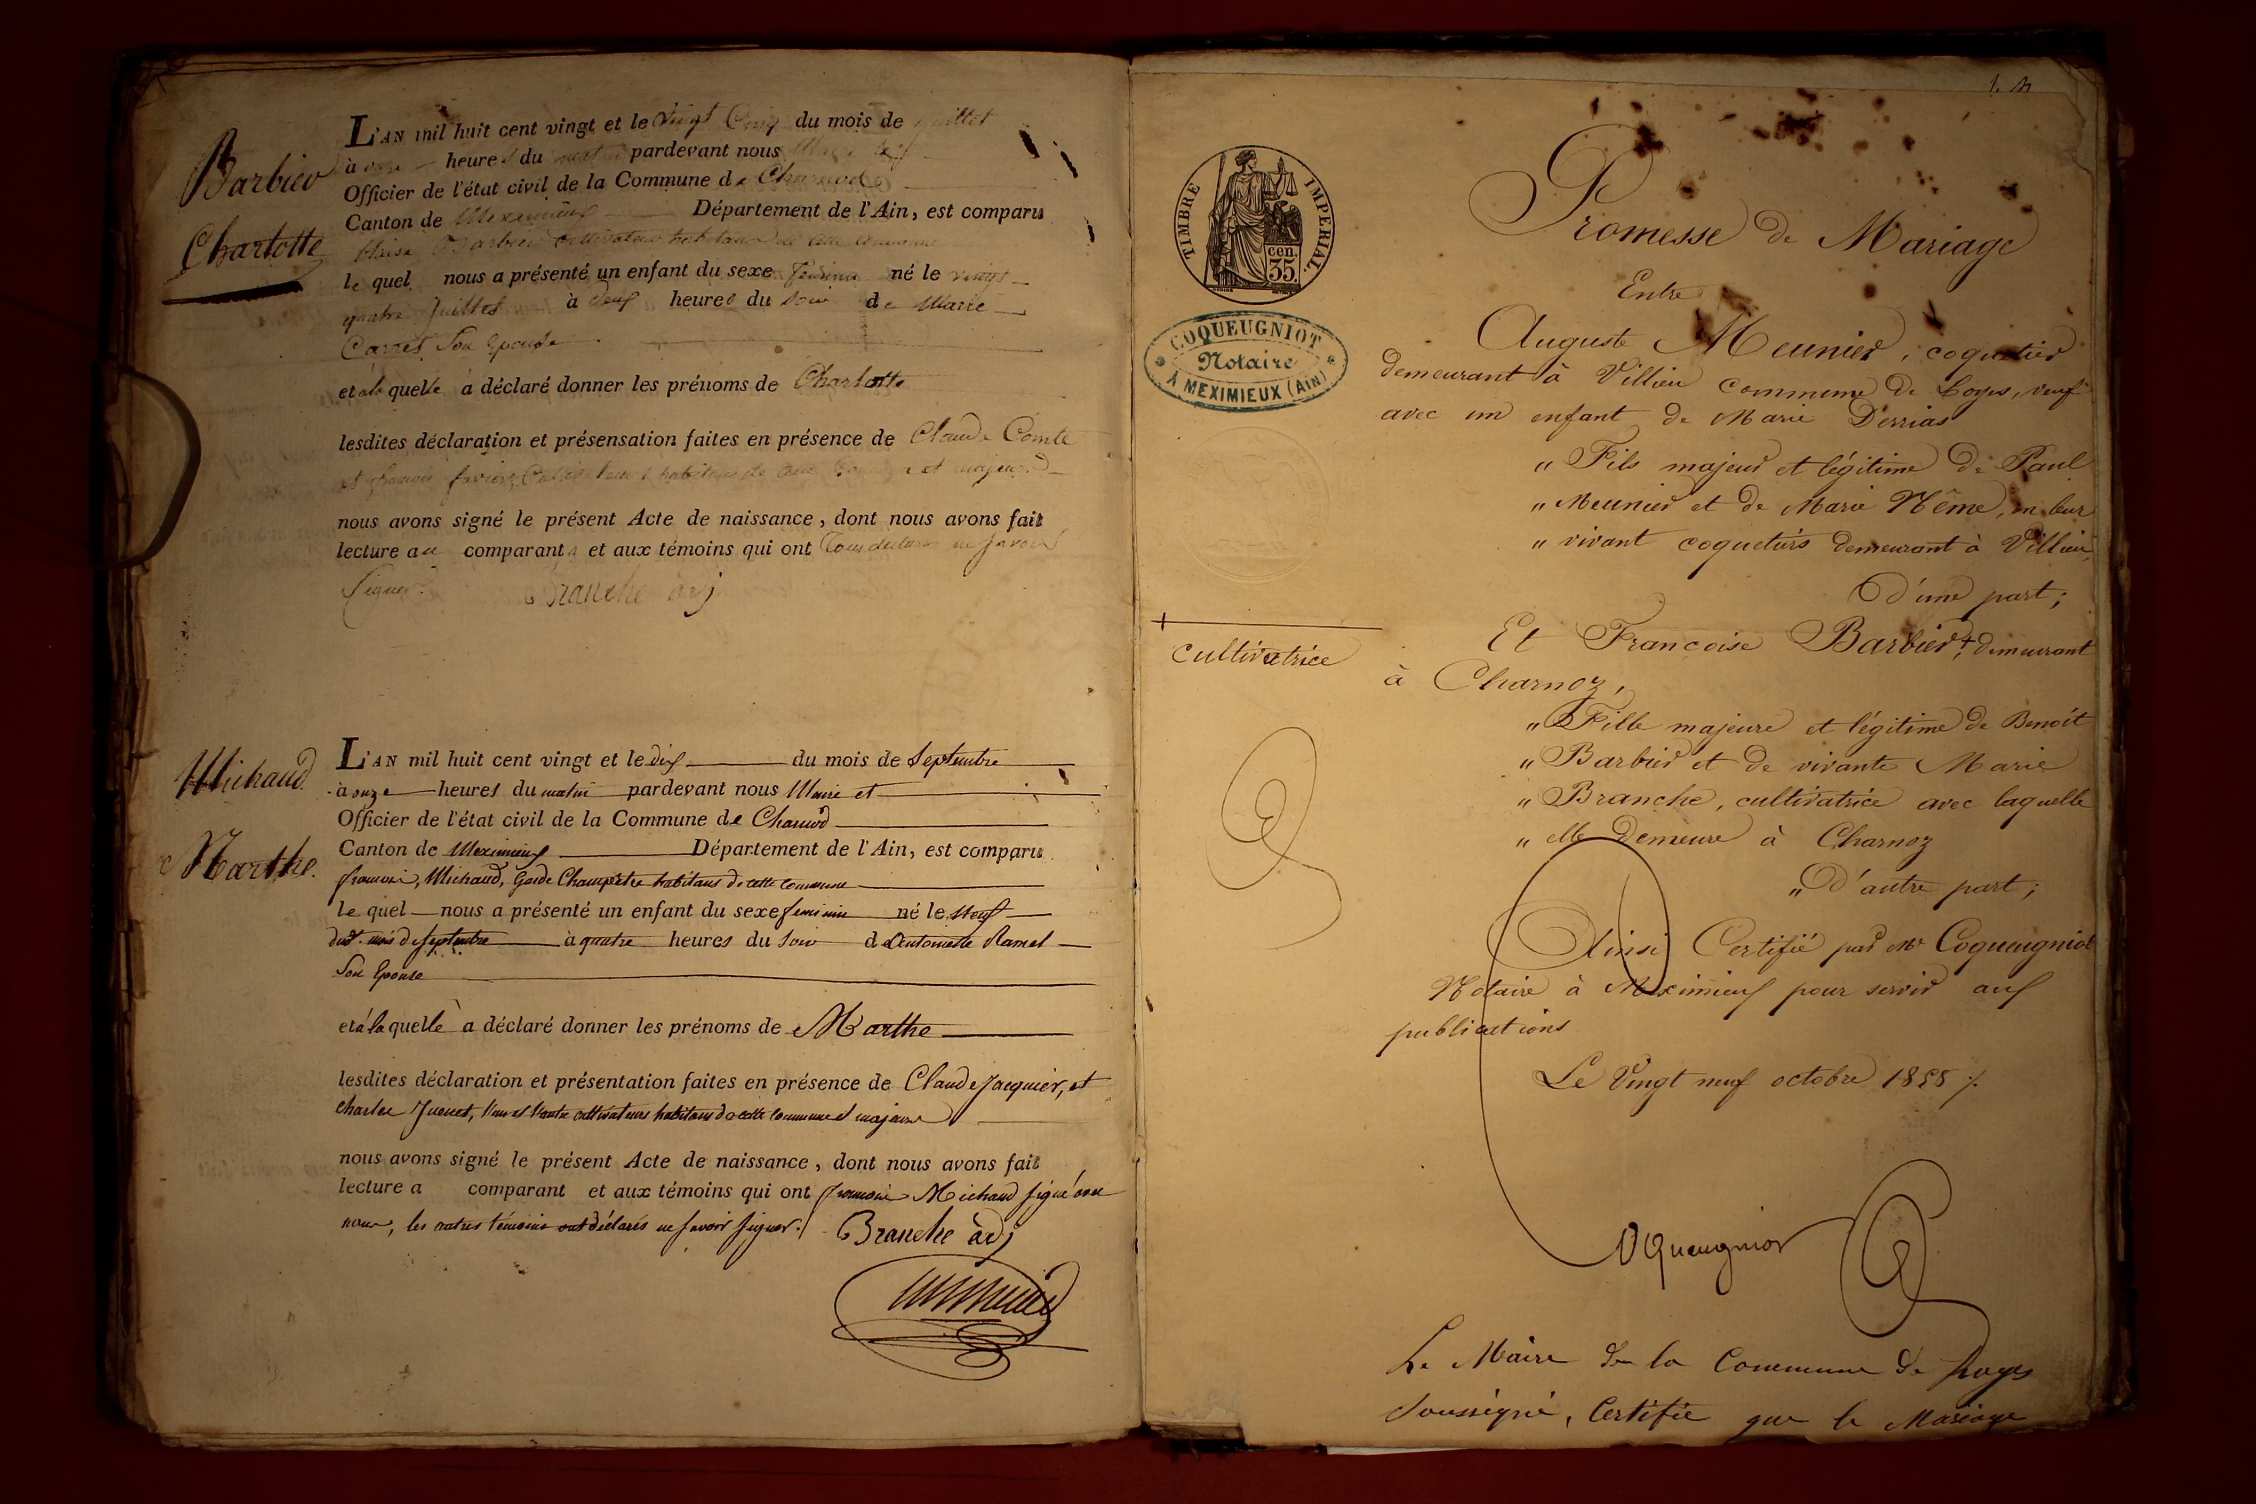 Barbier
Charlotte
L'AN mil huit cent vingt et le Vingt Cinq du mois de juillet
à onze heures du matin pardevant nous Maire et
Officier de l'état civil de la Commune de Charnod
Canton de Meximieux Département de l'Ain, est comparu
Barbier cultivateur habitant de cette commune
le quel nous a présenté un enfant du sexe feminin né le vingt
quatre juillet à neuf heures du soir de Marie
Carret son Epouse
et à la quelle a déclaré donner les prénoms de Charlotte
lesdites déclaration et présensation faites en présence de Claude Comte
et françois habitans de cette et majeurs
nous avons signé le présent Acte de naissance, dont nous avons fait
lecture au comparant et aux témoins qui ont tous declaré ne savoir
signer.
Branche adj
Michaud.
Marthe.
L'AN mil huit cent vingt et le dix du mois de Septembre
à onze heures du matin pardevant nous Maire et
Officier de l'état civil de la Commune de Charnod
Canton de Meximieux Département de l'Ain, est comparu
francois, Michaud, Garde Champetre habitans de cette commune
le quel nous a présenté un enfant du sexe feminin né le Neuf
dud. mois de septembre à quatre heures du soir d'Antoinette Ramel
Son Epouse
et à la quelle a déclaré donner les prénoms de Marthe
lesdites déclaration et présentation faites en présence de Claude Jacquier, et
charles Juenet, l'un et l'autre cultivateurs habitans de cette commune et majeurs
nous avons signé le présent Acte de naissance, dont nous avons fait
lecture a comparant et aux témoins qui ont francois Michaud signé avec
nous, les autres témoins ont déclarés ne savoir signer.
Branche adj
TIMBRE IMPERIAL.
35 cen.
COQUEUGNIOT
Notaire
A MEXIMIEUX (AIN)
Promesse de Mariage
Entre
Auguste Meunier, coquetier
demeurant à Villieu commune de Loyes, veuf
avec un enfant de Marie Derrias
" Fils majeur et légitime de Paul
" Meunier et de Marie Même, en leur
" vivant coquetiers demeurant à Villieu,
D'une part;
Et Francoise Barbier +, demeurant
cultivatrice
à Charnoz,
" Fille majeure et légitime de Benoit
" Barbier et de vivante Marie
" Branche, cultivatrice avec laquelle
" elle demeure à Charnoz
" D'autre part;
Ainsi Certifié par Me Coqueugniot
Notaire à Meximieux pour servir aux
publications
Le Vingt neuf octobre 1858 ./.
Coqueugniot
Le Maire de la Commune de Loyes
Soussigné, Certifie que le Mariage